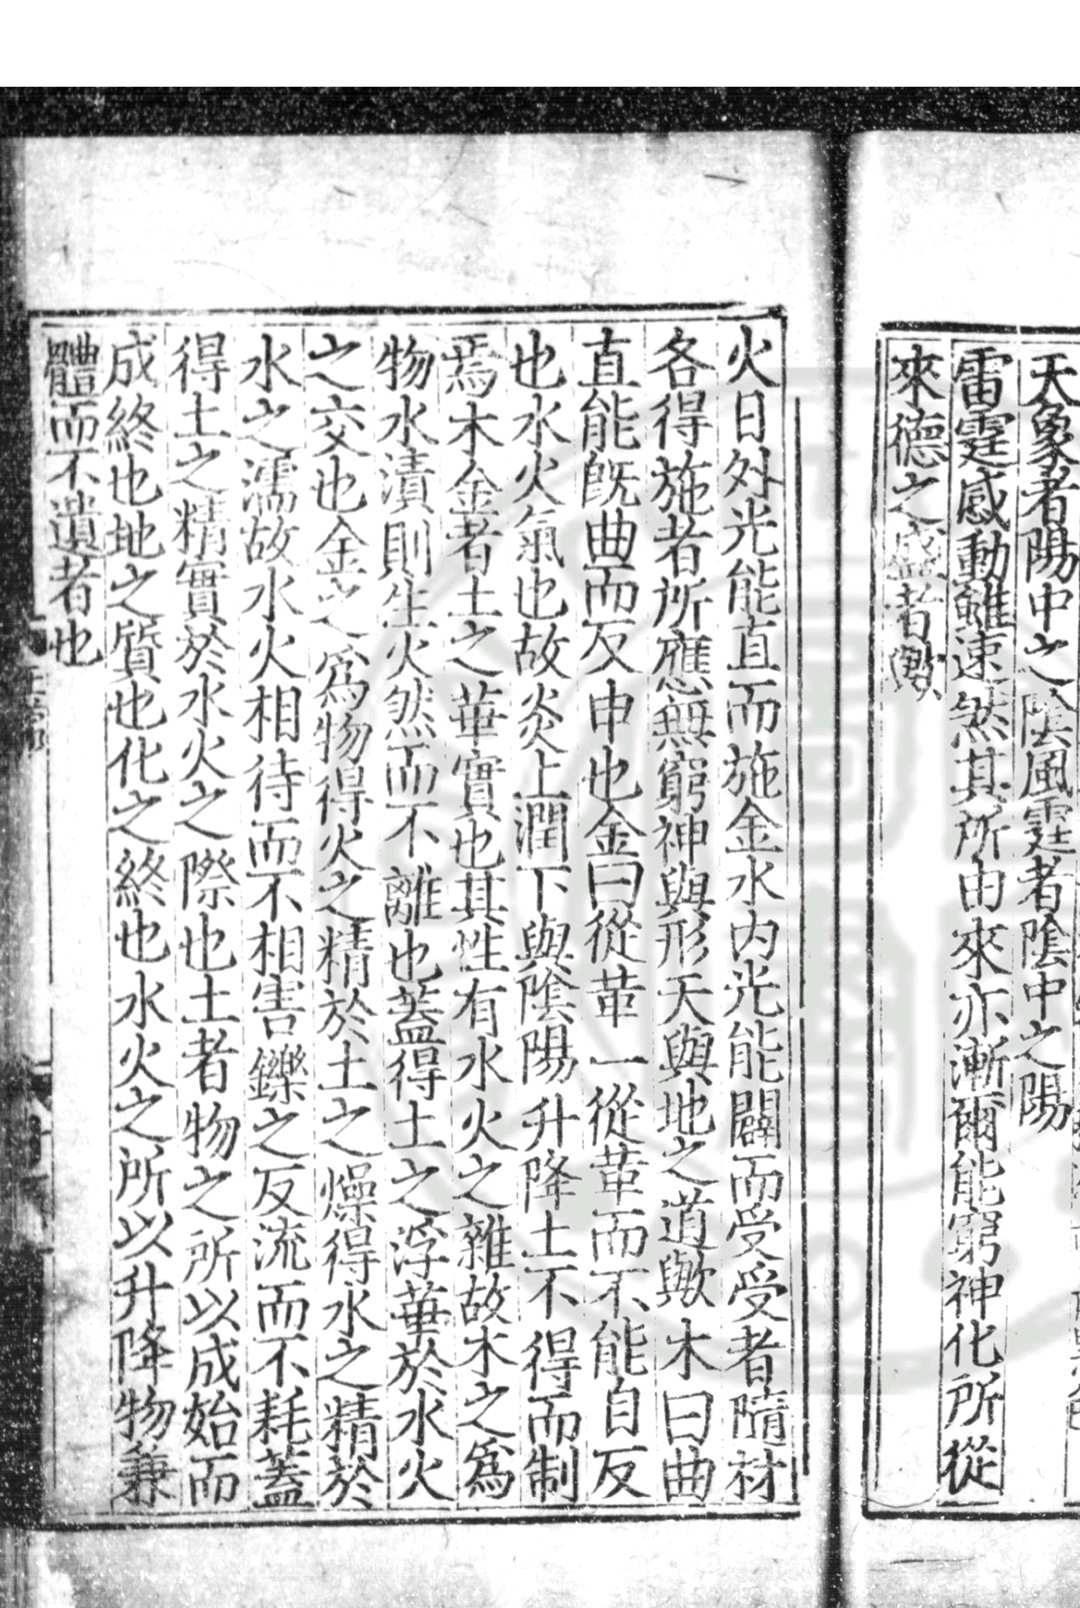 天象者陽中之陰風霆者陰中之陽
雷霆感動雖速然其所由來亦漸爾能窮神化所從
來德之盛者歟
火日外光能直而施金水内光能闢而受受者隨材
各得施者所應無窮神與形天與地之道歟木曰曲
直能既曲而反申也金曰從革一從革而不能自反
也水火氣也故炎上潤下與陰陽升降土不得而制
焉木金者土之華實也其性有水火之雜故木之爲
物水漬則生火然而不離也蓋得土之浮華於水火
之交也金之爲物得火之精於土之燥得水之精於
水之濡故水火相待而不相害鑠之反流而不耗蓋
得土之精實於水火之際也土者物之所以成始而
成終也地之質也化之終也水火之所以升降物兼
體而不遺者也